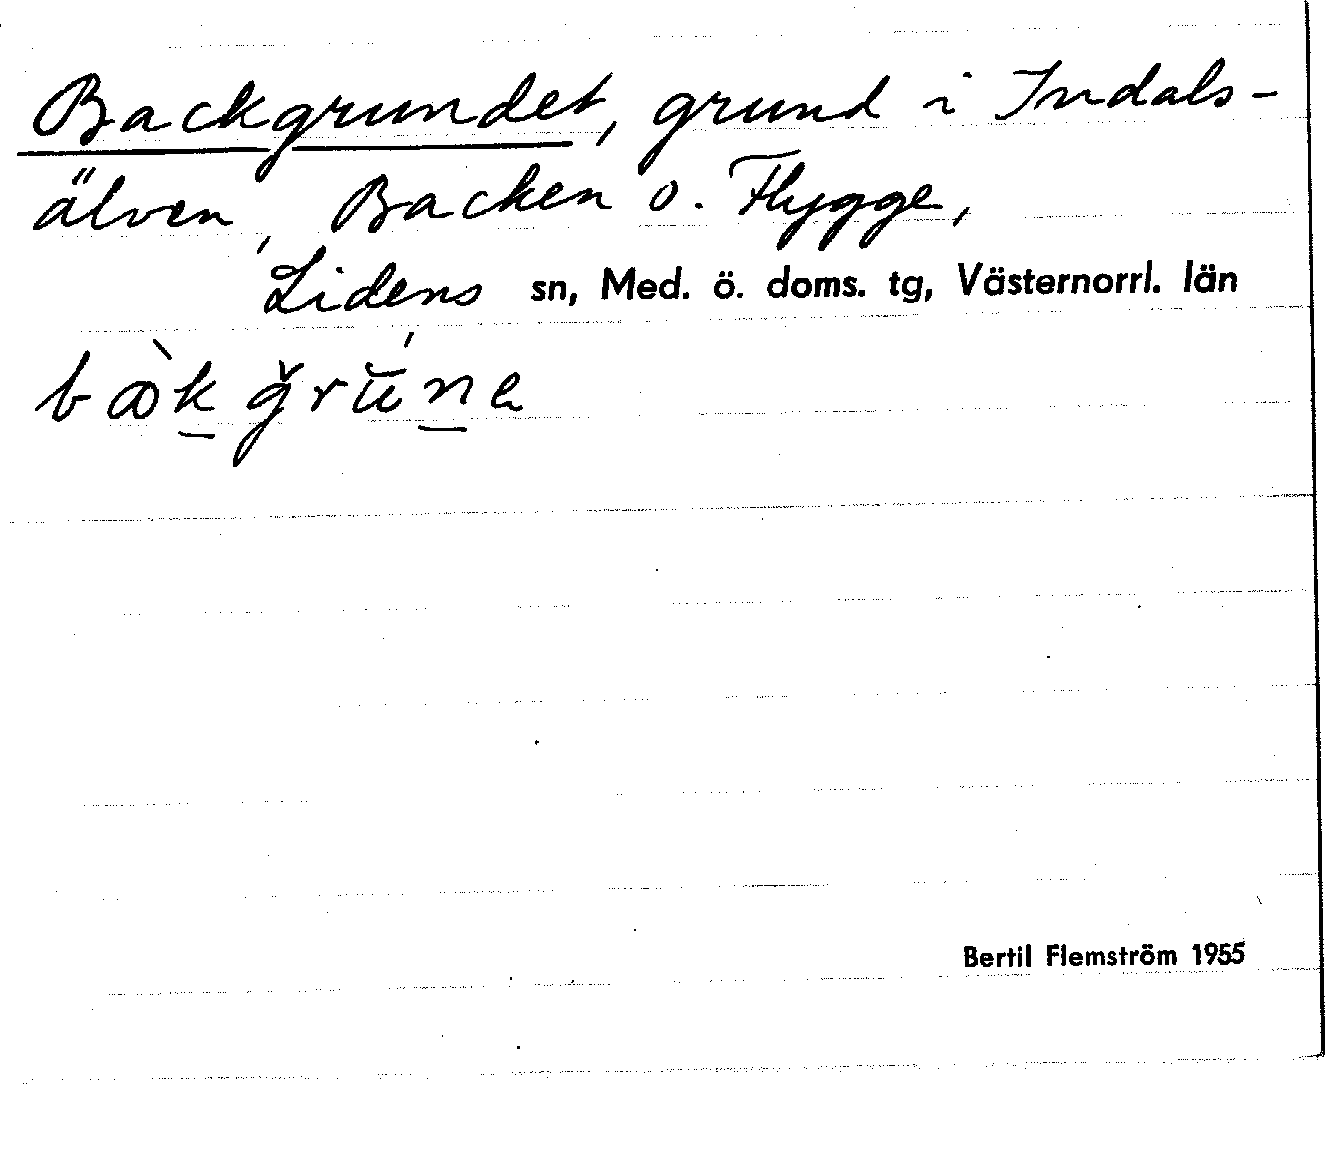 Backgrundet, grund i Indals-
älven, Backen o. Flygge,
Lidens sn, Med. ö. doms. tg, Västernorrl. län
Bertil Flemström 1955